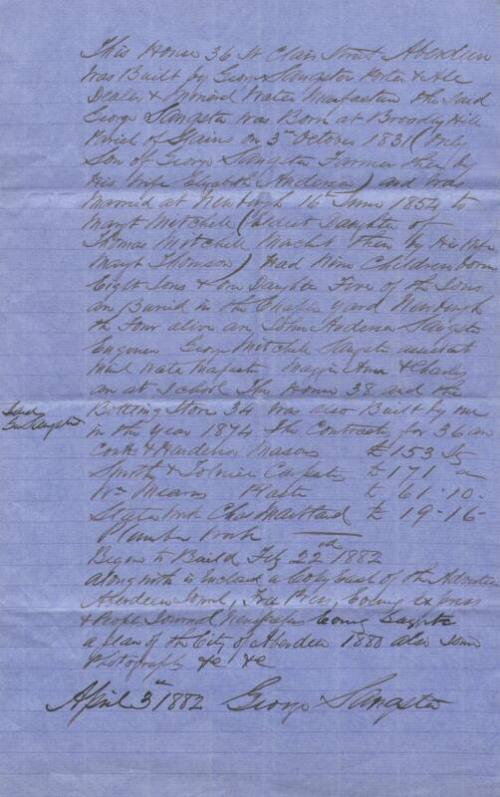 This House 36 St Clair Street Aberdeen
Was Built by George Sangster Porter & Ale
Dealer & Mineral Water Manufacturer the said
George Sangster was Born at Broadly Hill
Parish of Slains on 3rd October 1831 (only
Son of George Sangster Farmer then by
His Wife Elizabeth Anderson) and was
Married at Newburgh 16th June 1854 to
Margt Mitchell (Eldest Daughter of
Thomas Mitchell Macht then by His Wife
Margt Thomson) Had Nine Children born
Eight Sons & one Daughter Five of the Sons
are Buried in the Chapel yard Newburgh
the Four alive are John Anderson Sangster
Engineer George Mitchell Sangster assistant
Minl Water Manufacr Maggie Ann & Charley
are at School This House 38 and the
said
Geo Sangster
Bottling Store 34 was also Built by me
in the year 1874 the Contracts for 36 are
Cook & Masons £153 Stg
Smith & Carpenters £171
Wm Mearns Plaster £ 61-10-
Slater Work Chas Maitland £ 19-16-
Plumber Work
Began to Build Feby 22nd 1882
along with is Inclosed a Copy each of the
Aberdeen Journal, Free Press, Evening Express
& Peoples Journal Newspapers Evening Gazette
a plan of the City of Aberdeen 1880 also some
Photography &c &c
April 3rd 1882 George Sangster